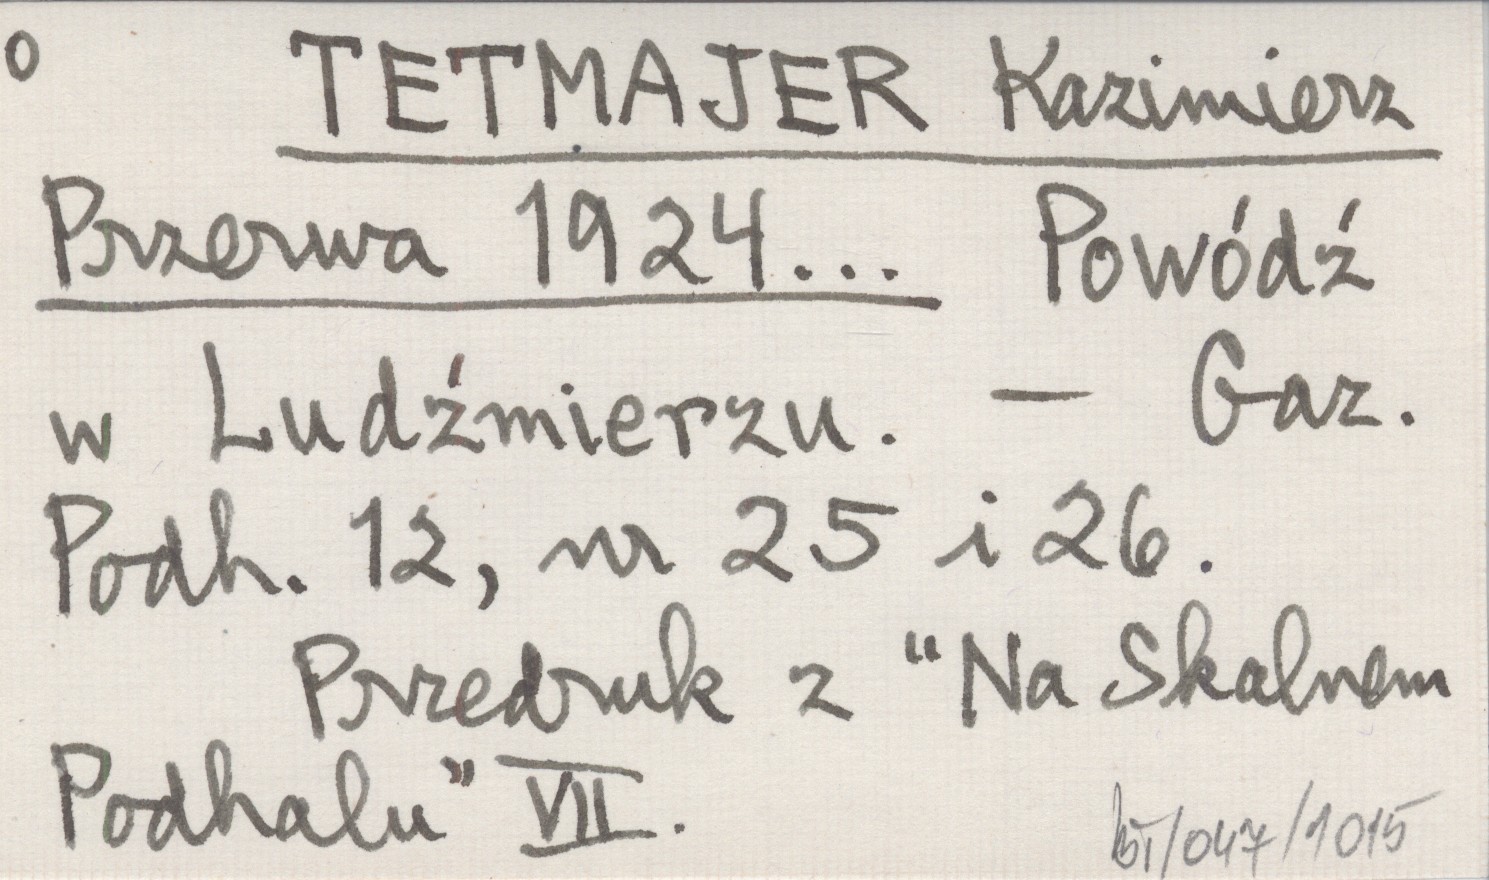 o TETMAJER Kazimierz
Przerwa 1924... Powódź
w Ludźmierzu. — Gaz.
Podh. 12, nr 25 i 26.
Przedruk z "Na Skalnem
Podhalu" VII.
/047/1015